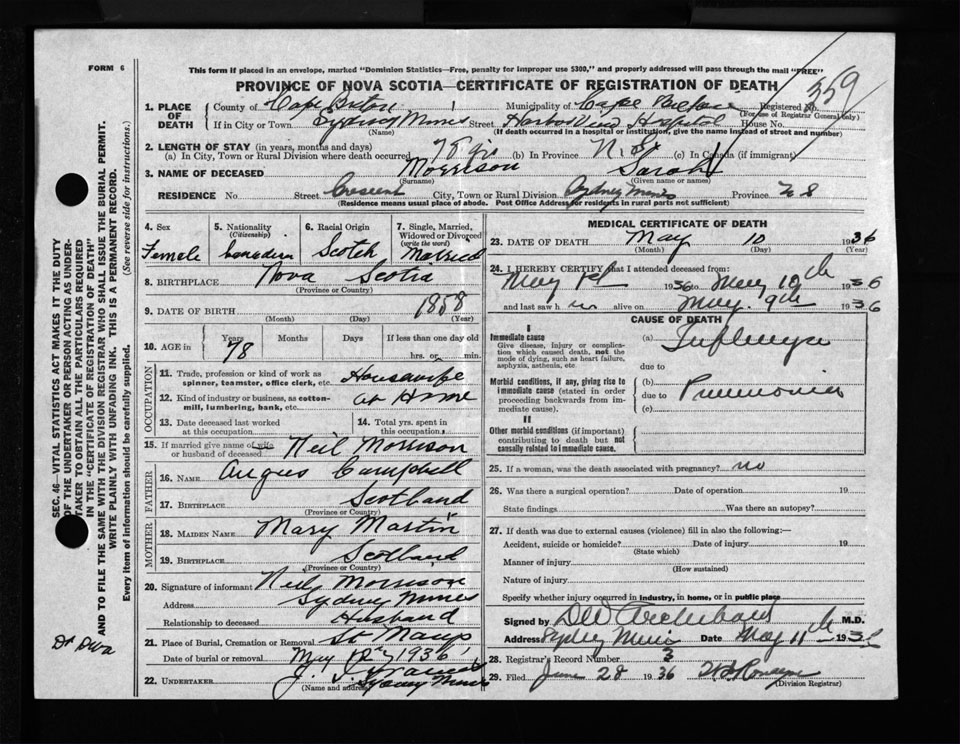 FORM 6
This form if placed in an envelope, marked "Dominion Statistics—Free, penalty for improper use $300," and properly addressed will pass through the mail "FREE"
PROVINCE OF NOVA SCOTIA—CERTIFICATE OF REGISTRATION OF DEATH
359
1. PLACE OF DEATH County of Cape Breton Municipality of Cape Breton Registered No.
(For use of Registrar General only)
If in City or Town Sydney Mines Street Harbor View Hospital House No.
(Name) (If death occurred in a hospital or institution, give the name instead of street and number)
2. LENGTH OF STAY (in years, months and days)
(a) In City, Town or Rural Division where death occurred 78 yrs (b) In Province N.S. (c) In Canada (if immigrant)
3. NAME OF DECEASED Morrison Sarah
(Surname) (Given name or names)
RESIDENCE No. Street Crescent City, Town or Rural Division Sydney Mines Province N S
(Residence means usual place of abode. Post Office Address for residents in rural parts not sufficient)
4. Sex 5. Nationality (Citizenship) 6. Racial Origin 7. Single, Married, Widowed or Divorced (write the word)
Female Canadian Scotch Married
8. BIRTHPLACE Nova Scotia
(Province or Country)
9. DATE OF BIRTH 1858
(Month) (Day) (Year)
10. AGE in Years Months Days If less than one day old
78 hrs. or min.
OCCUPATION
11. Trade, profession or kind of work as spinner, teamster, office clerk, etc. Housewife
12. Kind of industry or business, as cotton-mill, lumbering, bank, etc. at Home
13. Date deceased last worked at this occupation 14. Total yrs. spent in this occupation
15. If married give name of wife or husband of deceased Neil Morrison
FATHER
16. NAME Angus Campbell
17. BIRTHPLACE Scotland
(Province or Country)
MOTHER
18. MAIDEN NAME Mary Martin
19. BIRTHPLACE Scotland
(Province or Country)
20. Signature of informant Neil Morrison
Address Sydney Mines
Relationship to deceased Husband
21. Place of Burial, Cremation or Removal St
Date of burial or removal May 1936
22. UNDERTAKER J.
Sydney Mines
(Name and address)
MEDICAL CERTIFICATE OF DEATH
23. DATE OF DEATH May 10 1936
(Month) (Day)
24. I HEREBY CERTIFY that I attended deceased from:
May 1st 1936 to May 10th 1936
and last saw h alive on May 9th 1936
CAUSE OF DEATH
I
Immediate cause
Give disease, injury or complication which caused death, not the mode of dying, such as heart failure, asphyxia, asthenia, etc.
(a) Influenza
due to
Morbid conditions, if any, giving rise to immediate cause (stated in order proceeding backwards from immediate cause).
(b)
due to Pneumonia
(c)
II
Other morbid conditions (if important) contributing to death but not causally related to immediate cause.
25. If a woman, was the death associated with pregnancy? no
26. Was there a surgical operation? Date of operation 19
State findings Was there an autopsy?
27. If death was due to external causes (violence) fill in also the following:—
Accident, suicide or homicide? Date of injury 19
(State which)
Manner of injury
(How sustained)
Nature of injury
Specify whether injury occurred in industry, in home, or in public place
Signed by Archibald M.D.
Address Sydney Mines Date May 11th 1936
28. Registrar's Record Number 3
29. Filed June 28 1936
(Division Registrar)
SEC. 46—VITAL STATISTICS ACT MAKES IT THE DUTY
OF THE UNDERTAKER OR PERSON ACTING AS UNDER-
TAKER TO OBTAIN ALL THE PARTICULARS REQUIRED
IN THE "CERTIFICATE OF REGISTRATION OF DEATH"
AND TO FILE THE SAME WITH THE DIVISION REGISTRAR WHO SHALL ISSUE THE BURIAL PERMIT.
WRITE PLAINLY WITH UNFADING INK. THIS IS A PERMANENT RECORD.
Every item of information should be carefully supplied. (See reverse side for instructions.)